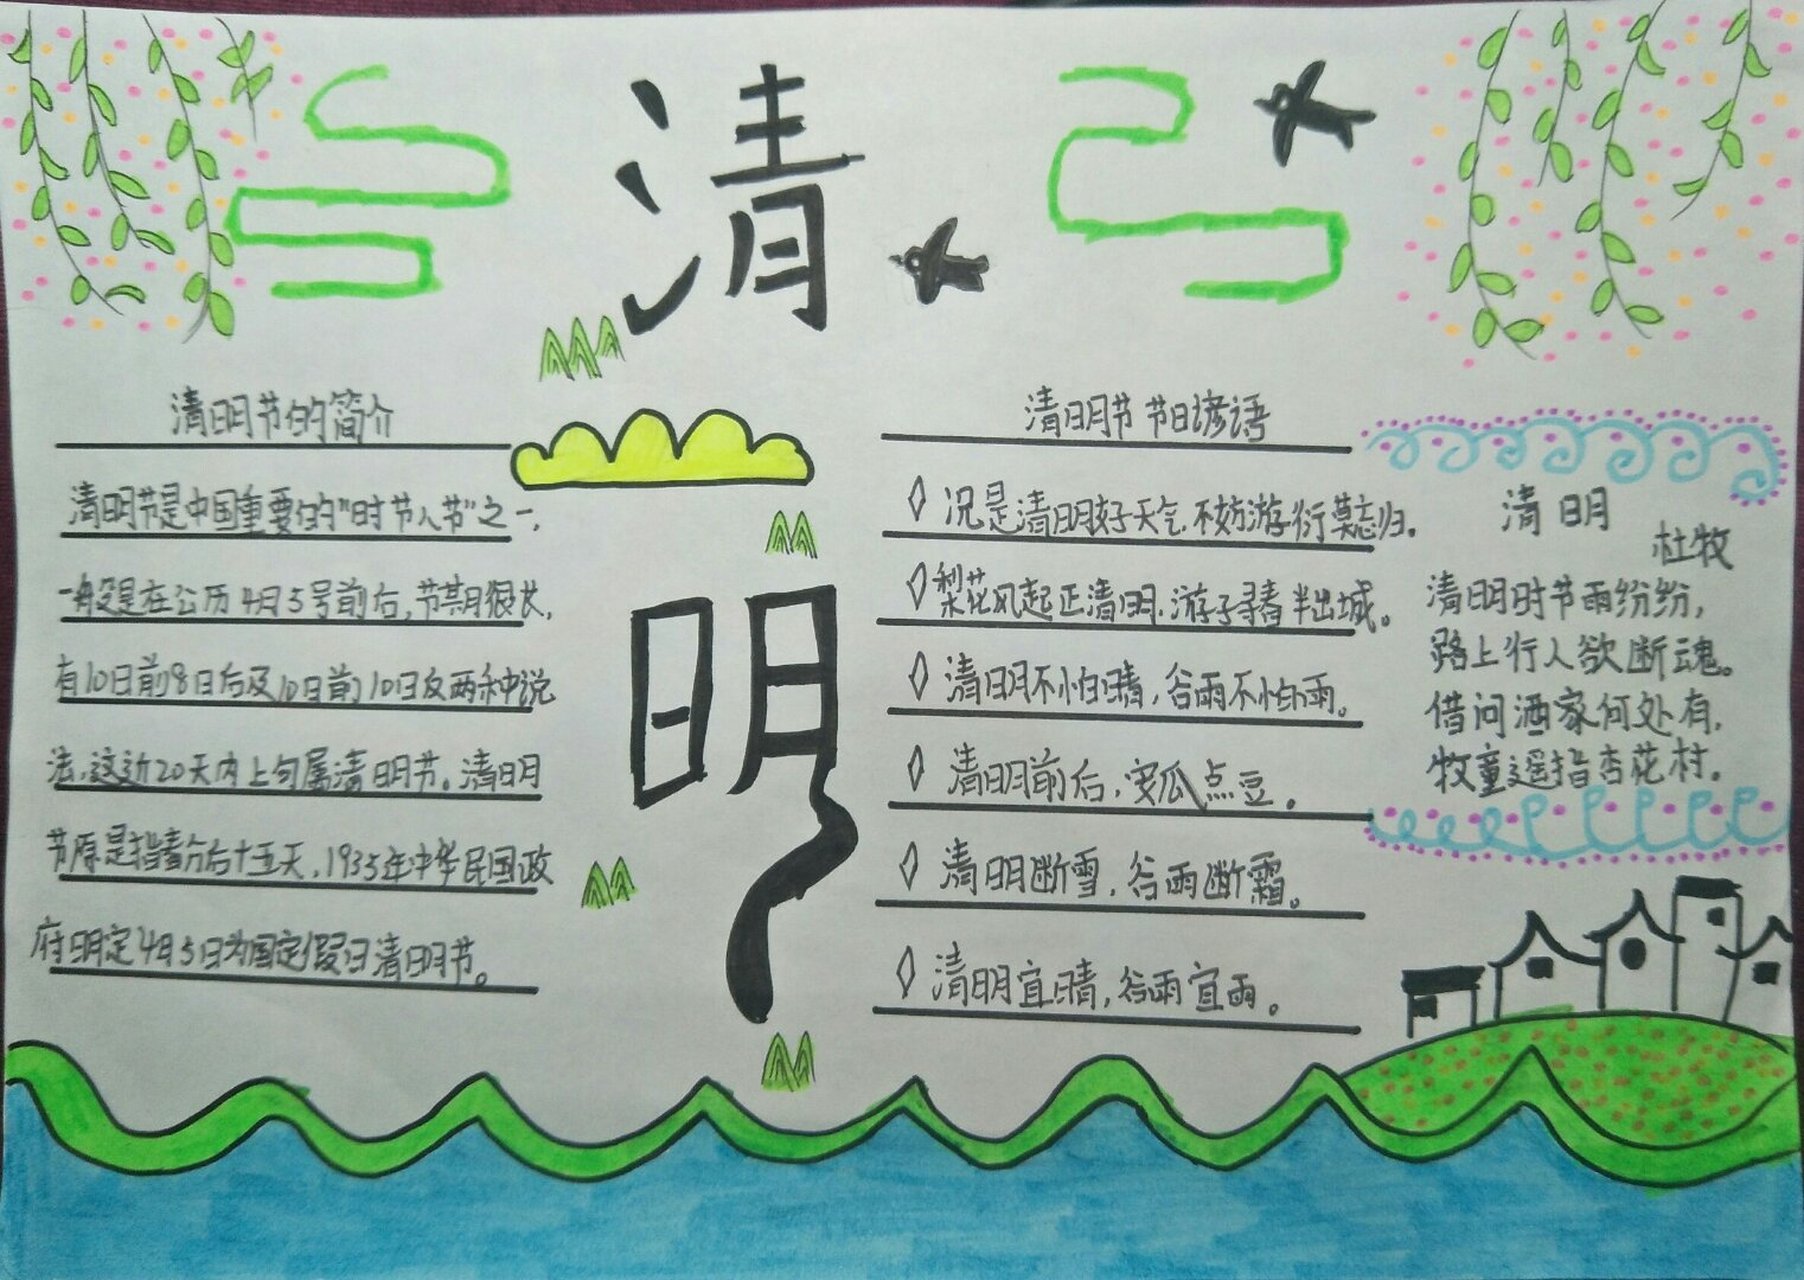 清
明
清明节的简介
清明节是中国重要的"时节八节"之一,
一般是在公历4月5号前后,节期很长,
有10日前8日后及10日前10日后两种说
法,这近20天内上旬属清明节。清明
节原是指春分后十五天,1935年中华民国政
府明定4月5日为国定假日清明节。
清明节节日谚语
况是清明好天气,不妨游衍莫忘归。
梨花风起正清明,游子寻春半出城。
清明不怕晴,谷雨不怕雨。
清明前后,安瓜点豆。
清明断雪,谷雨断霜。
清明宜晴,谷雨宜雨。
清明
杜牧
清明时节雨纷纷,
路上行人欲断魂。
借问酒家何处有,
牧童遥指杏花村。